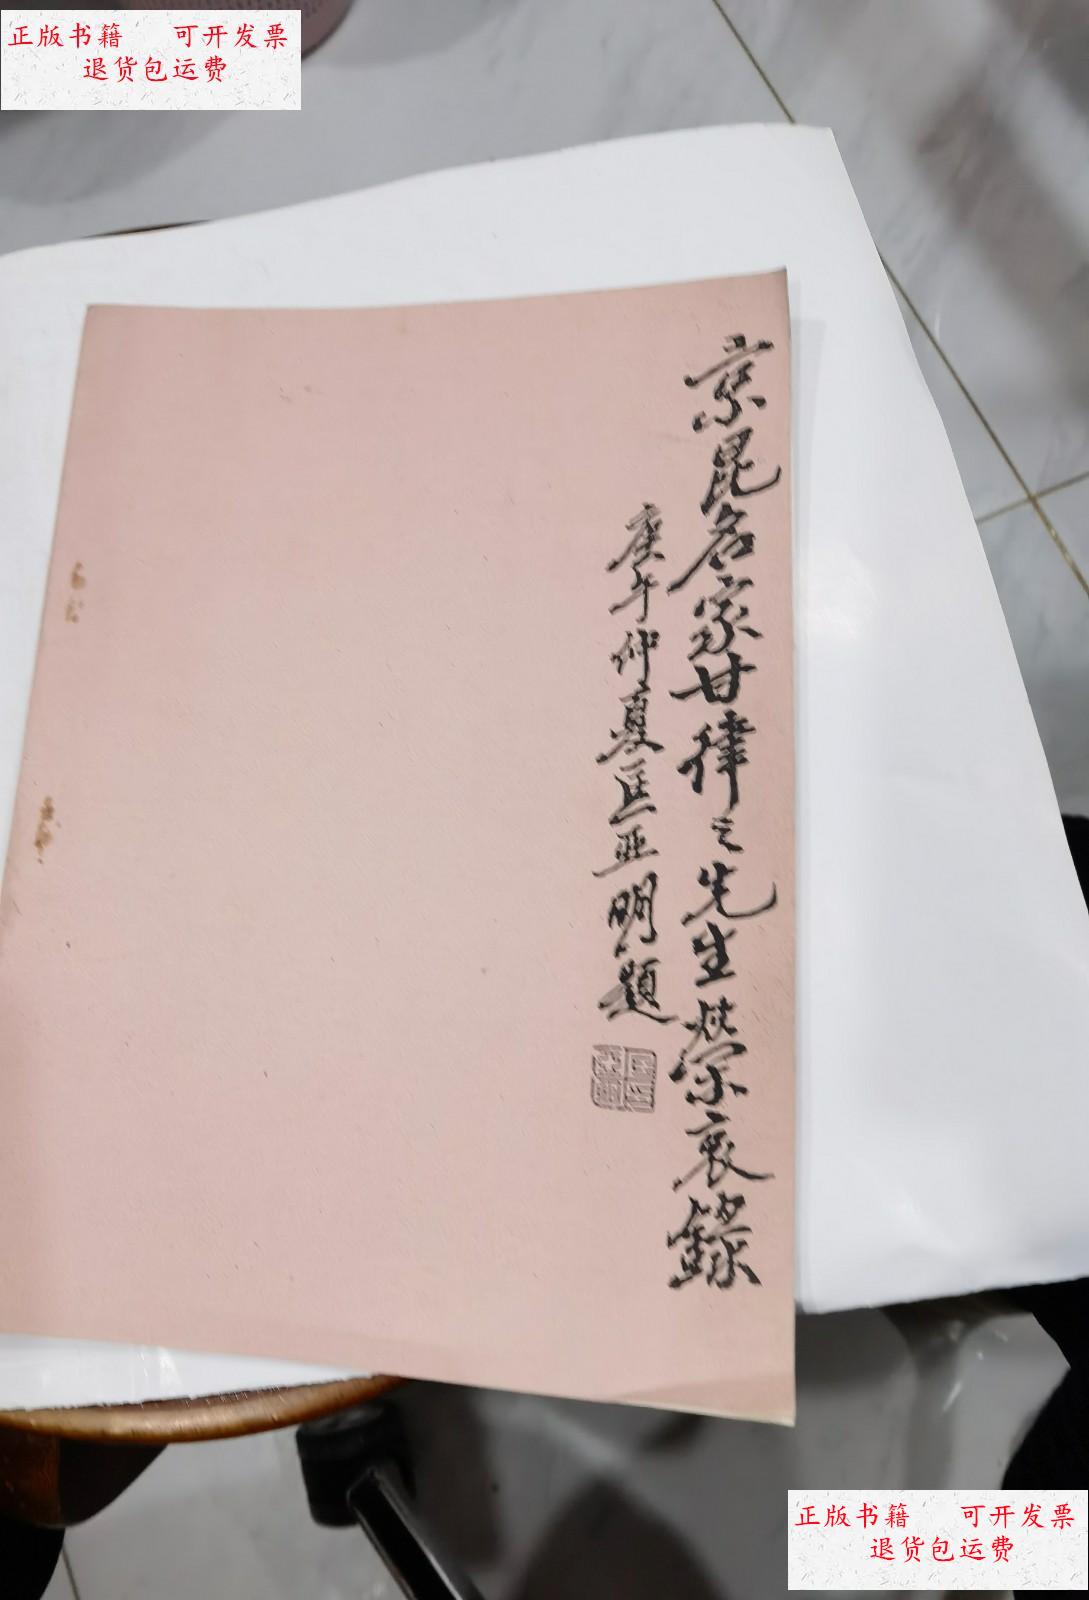 正版书籍 可开发票
退货包运费
京昆名家甘律之先生榮哀錄
庚午仲夏匡亚明題
正版书籍 可开发票
退货包运费